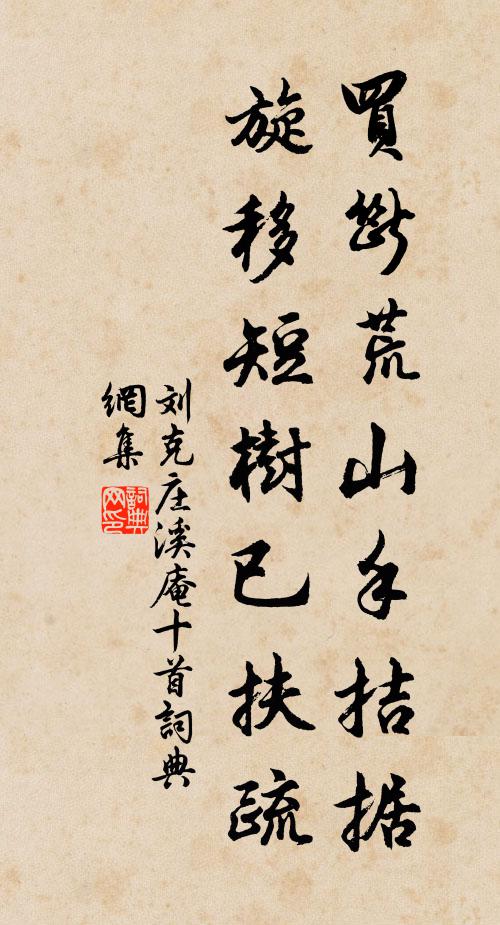 買斷荒山手拮据
旋移短樹已扶疏
刘克庄溪庵十首詞典
網集
詞典网印